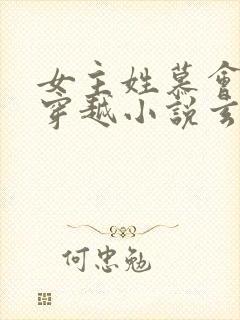 女主姓慕會
穿越小說玄
何忠勉